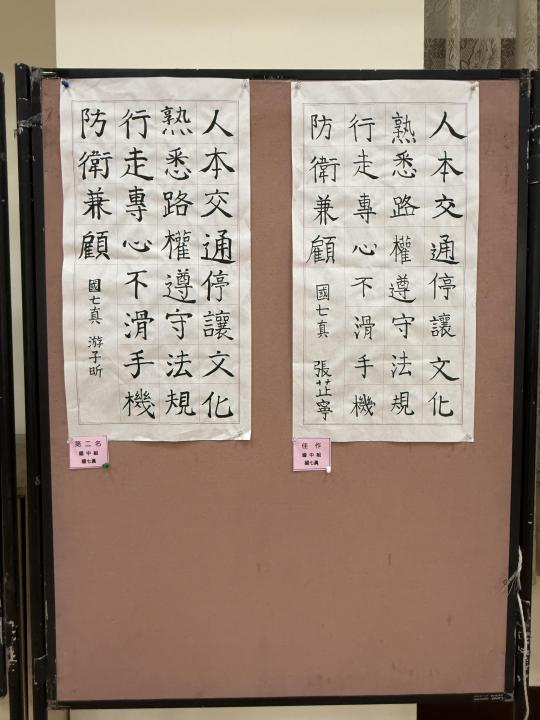 人本交通停讓文化
熟悉路權遵守法規
行走專心不滑手機
防衛兼顧
國七真 游子昕
第二名
國中組
國七真
人本交通停讓文化
熟悉路權遵守法規
行走專心不滑手機
防衛兼顧
國七真 張芷寧
佳作
國中組
國七真